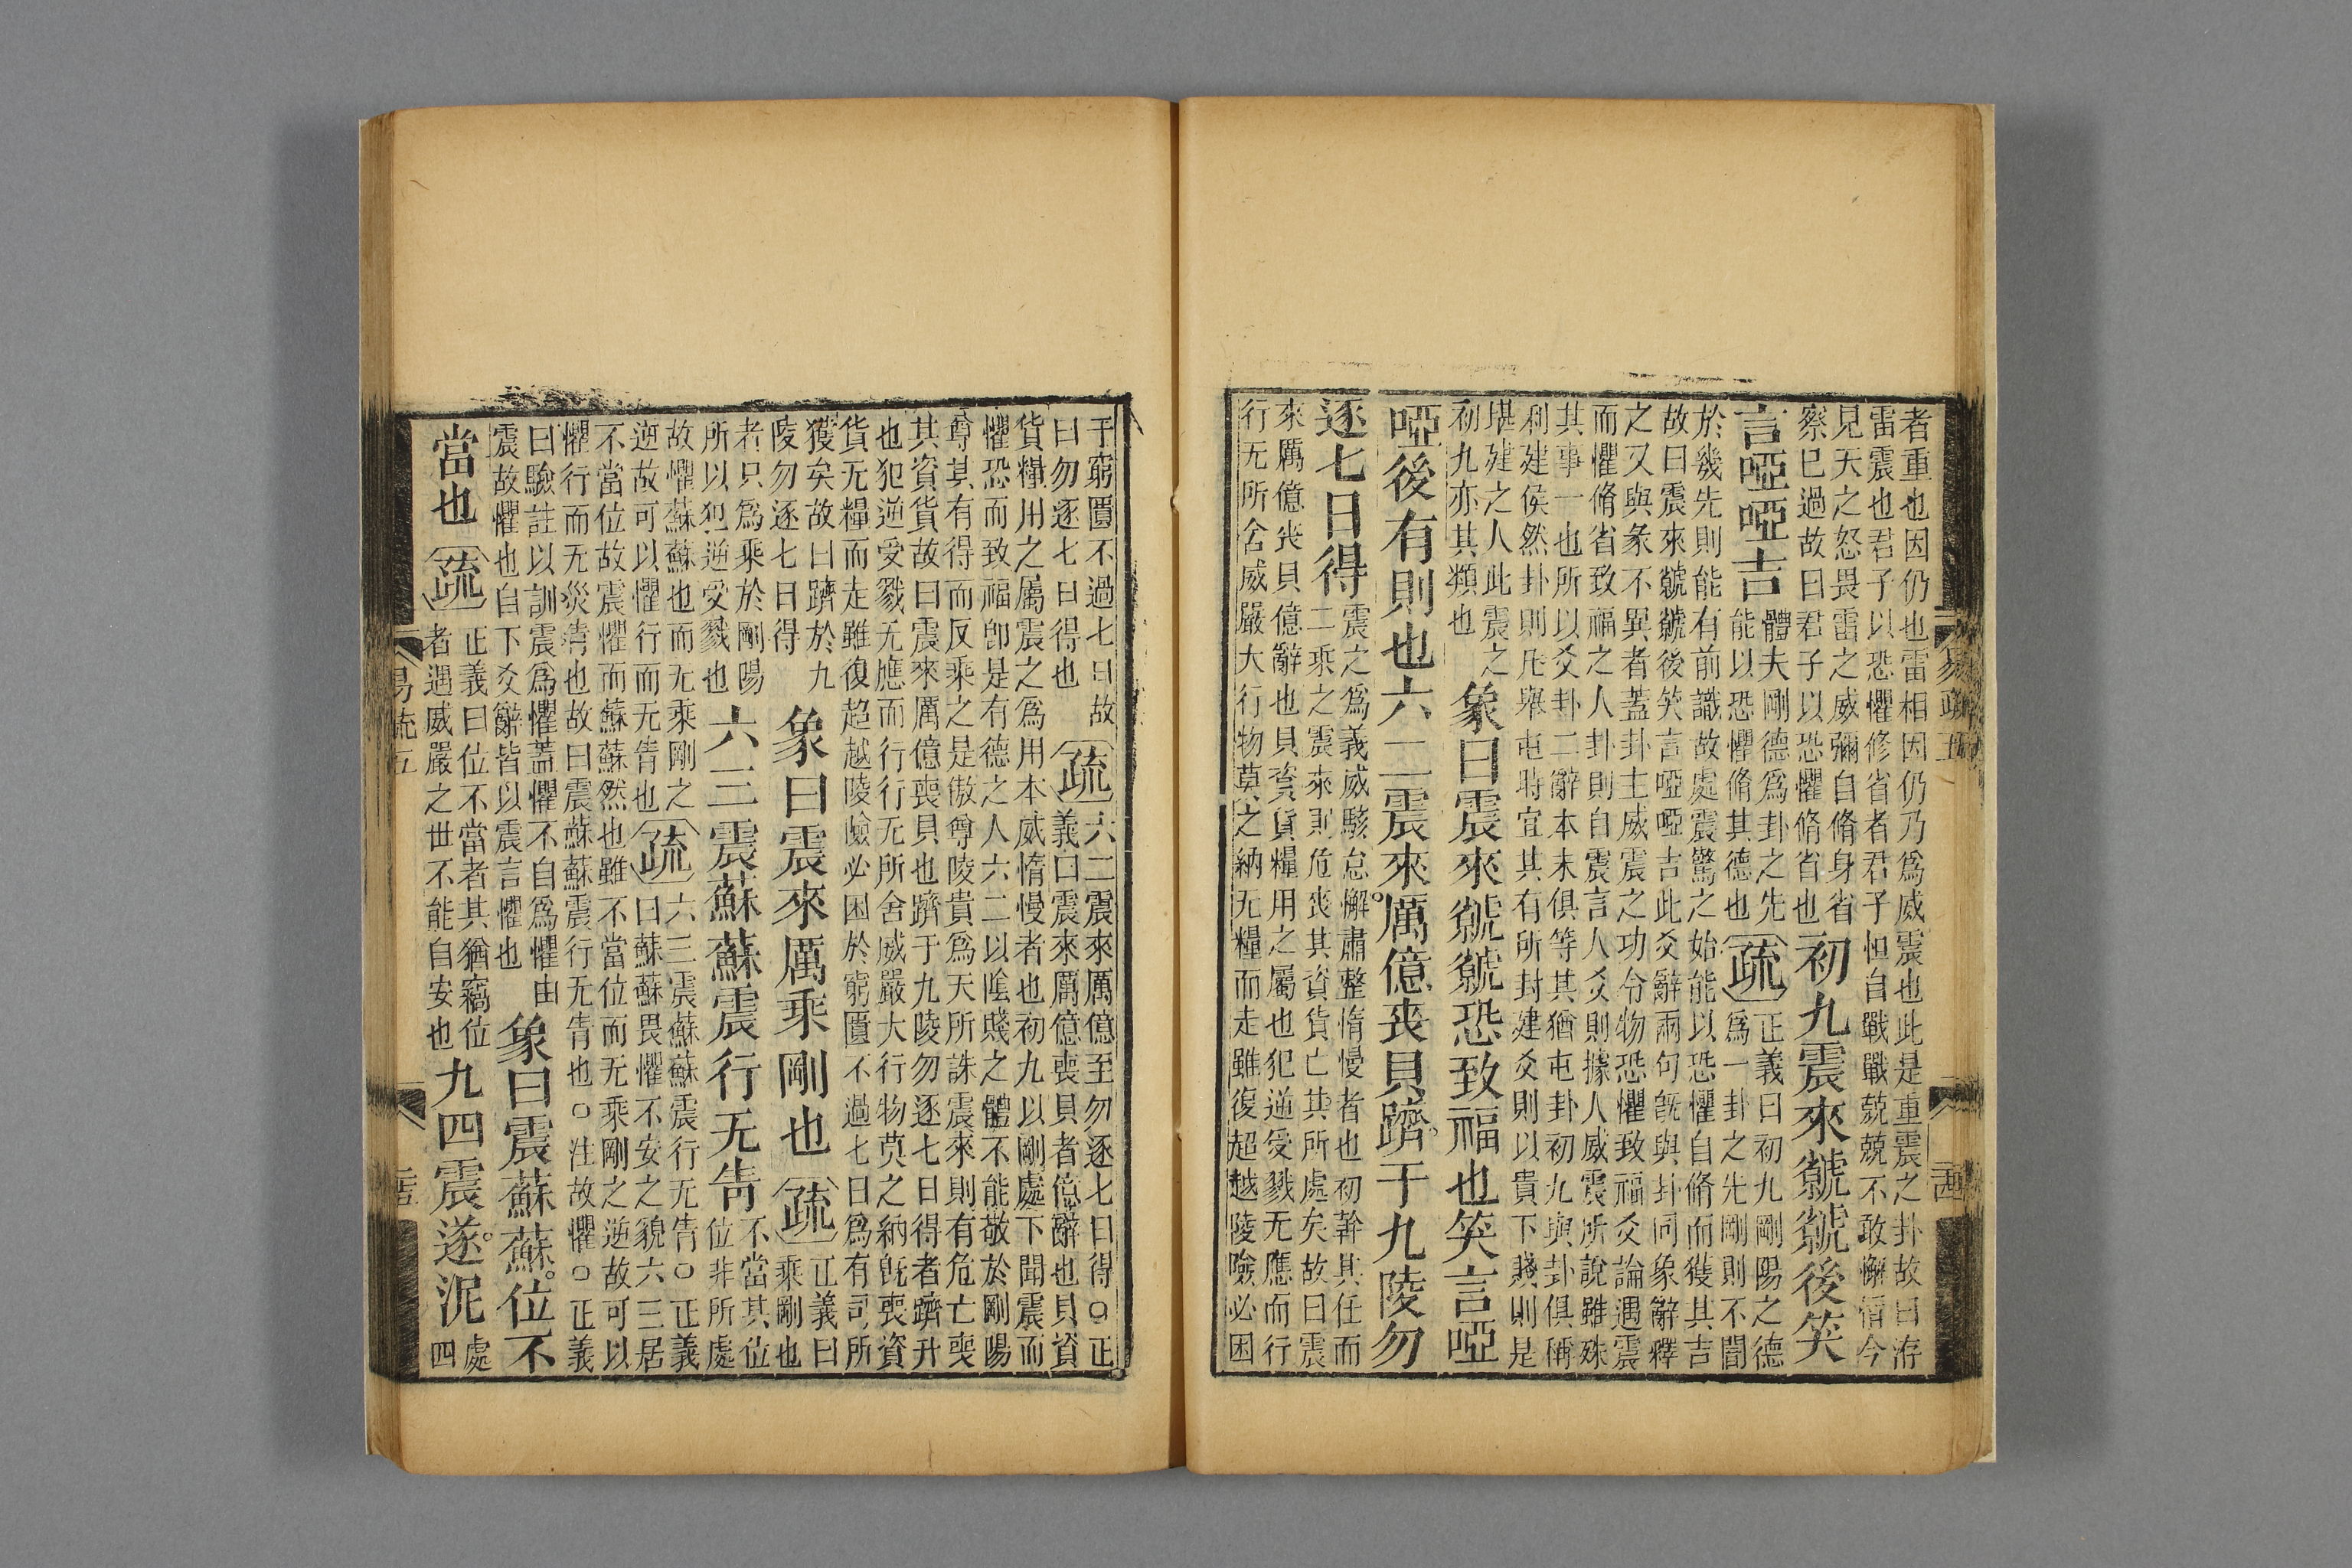 者重也因仍也雷相因仍乃爲威震也此是重震之卦故曰洊
雷震也君子以恐懼修省者君子恒自戰戰兢兢不敢懈惰今
見天之怒畏雷之威彌自脩身省
察己過故曰君子以恐懼脩省也
初九震來虩虩後笑
言啞啞吉
體夫剛德爲卦之先
能以恐懼脩其德也
疏
正義曰初九剛陽之德
爲一卦之先剛則不闇
於幾先則能有前識故處震驚之始能以恐懼自脩而獲其吉
故曰震來虩虩後笑言啞啞吉此爻辭兩句旣與卦同象辭釋
之又與彖不異者蓋卦主威震之功令物恐懼致福爻論遇震
而懼脩省致福之人卦則自震言人爻則據人威震所說雖殊
其事一也所以爻卦二辭本末俱等其猶屯卦初九與卦俱稱
利建侯然卦則凡舉屯時宜其有所封建爻則以貴下賤則是
堪建之人此震之
初九亦其類也
象曰震來虩虩恐致福也笑言啞
啞後有則也六二震來厲億喪貝躋于九陵勿
逐七日得
震之爲義威駭怠懈肅整惰慢者也初幹其任而
二乘之震來則危喪其資貨亡其所處矣故曰震
來厲億喪貝億辭也貝資貨糧用之屬也犯逆受戮无應而行
行无所舍威嚴大行物莫之納无糧而走雖復超越陵險必困
于窮匱不過七日故
曰勿逐七日得也
疏
六二震來厲億至勿逐七日得○正
義曰震來厲億喪貝者億辭也貝資
貨糧用之屬震之爲用本威惰慢者也初九以剛處下聞震而
懼恐而致福即是有德之人六二以陰賤之體不能敬於剛陽
尊其有得而反乘之是傲尊陵貴爲天所誅震來則有危亡喪
其資貨故曰震來厲億喪貝也躋于九陵勿逐七日得者躋升
也犯逆受戮无應而行行无所舍威嚴大行物莫之納旣喪資
貨无糧而走雖復超越陵險必困於窮匱不過七日爲有司所
獲矣故曰躋於九
陵勿逐七日得
象曰震來厲乘剛也
疏
正義曰
乘剛也
者只爲乘於剛陽
所以犯逆受戮也
六三震蘇蘇震行无眚
不當其位
位非所處
故懼蘇蘇也而无乘剛之
逆故可以懼行而无眚也
疏
六三震蘇蘇震行无眚○正義
曰蘇蘇畏懼不安之貌六三居
不當位故震懼而蘇蘇然也雖不當位而无乘剛之逆故可以
懼行而无災眚也故曰震蘇蘇震行无眚也○注故懼○正義
曰驗註以訓震爲懼蓋懼不自爲懼由
震故懼也自下爻辭皆以震言懼也
象曰震蘇蘇位不
當也
疏
正義曰位不當者其猶竊位
者遇威嚴之世不能自安也
九四震遂泥
處
四
易疏五